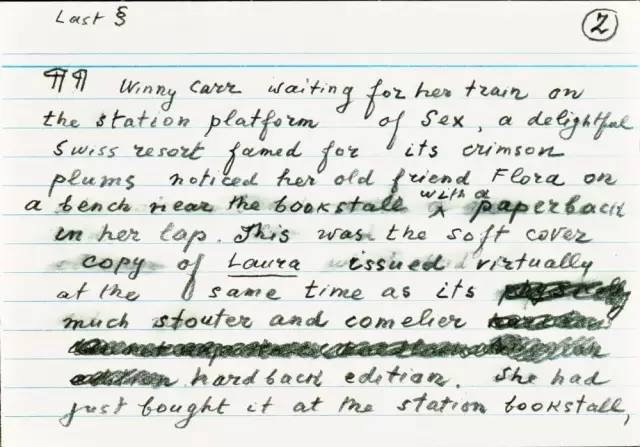 Last §
2
¶¶ Winny Carr waiting for her train on
the station platform of Sex, a delightful
Swiss resort famed for its crimson
plums noticed her old friend Flora on
a bench near the bookstall with a paperback
in her lap. This was the soft cover
copy of Laura issued virtually
at the same time as its
much stouter and comelier
hardback edition. She had
just bought it at the station bookstall,